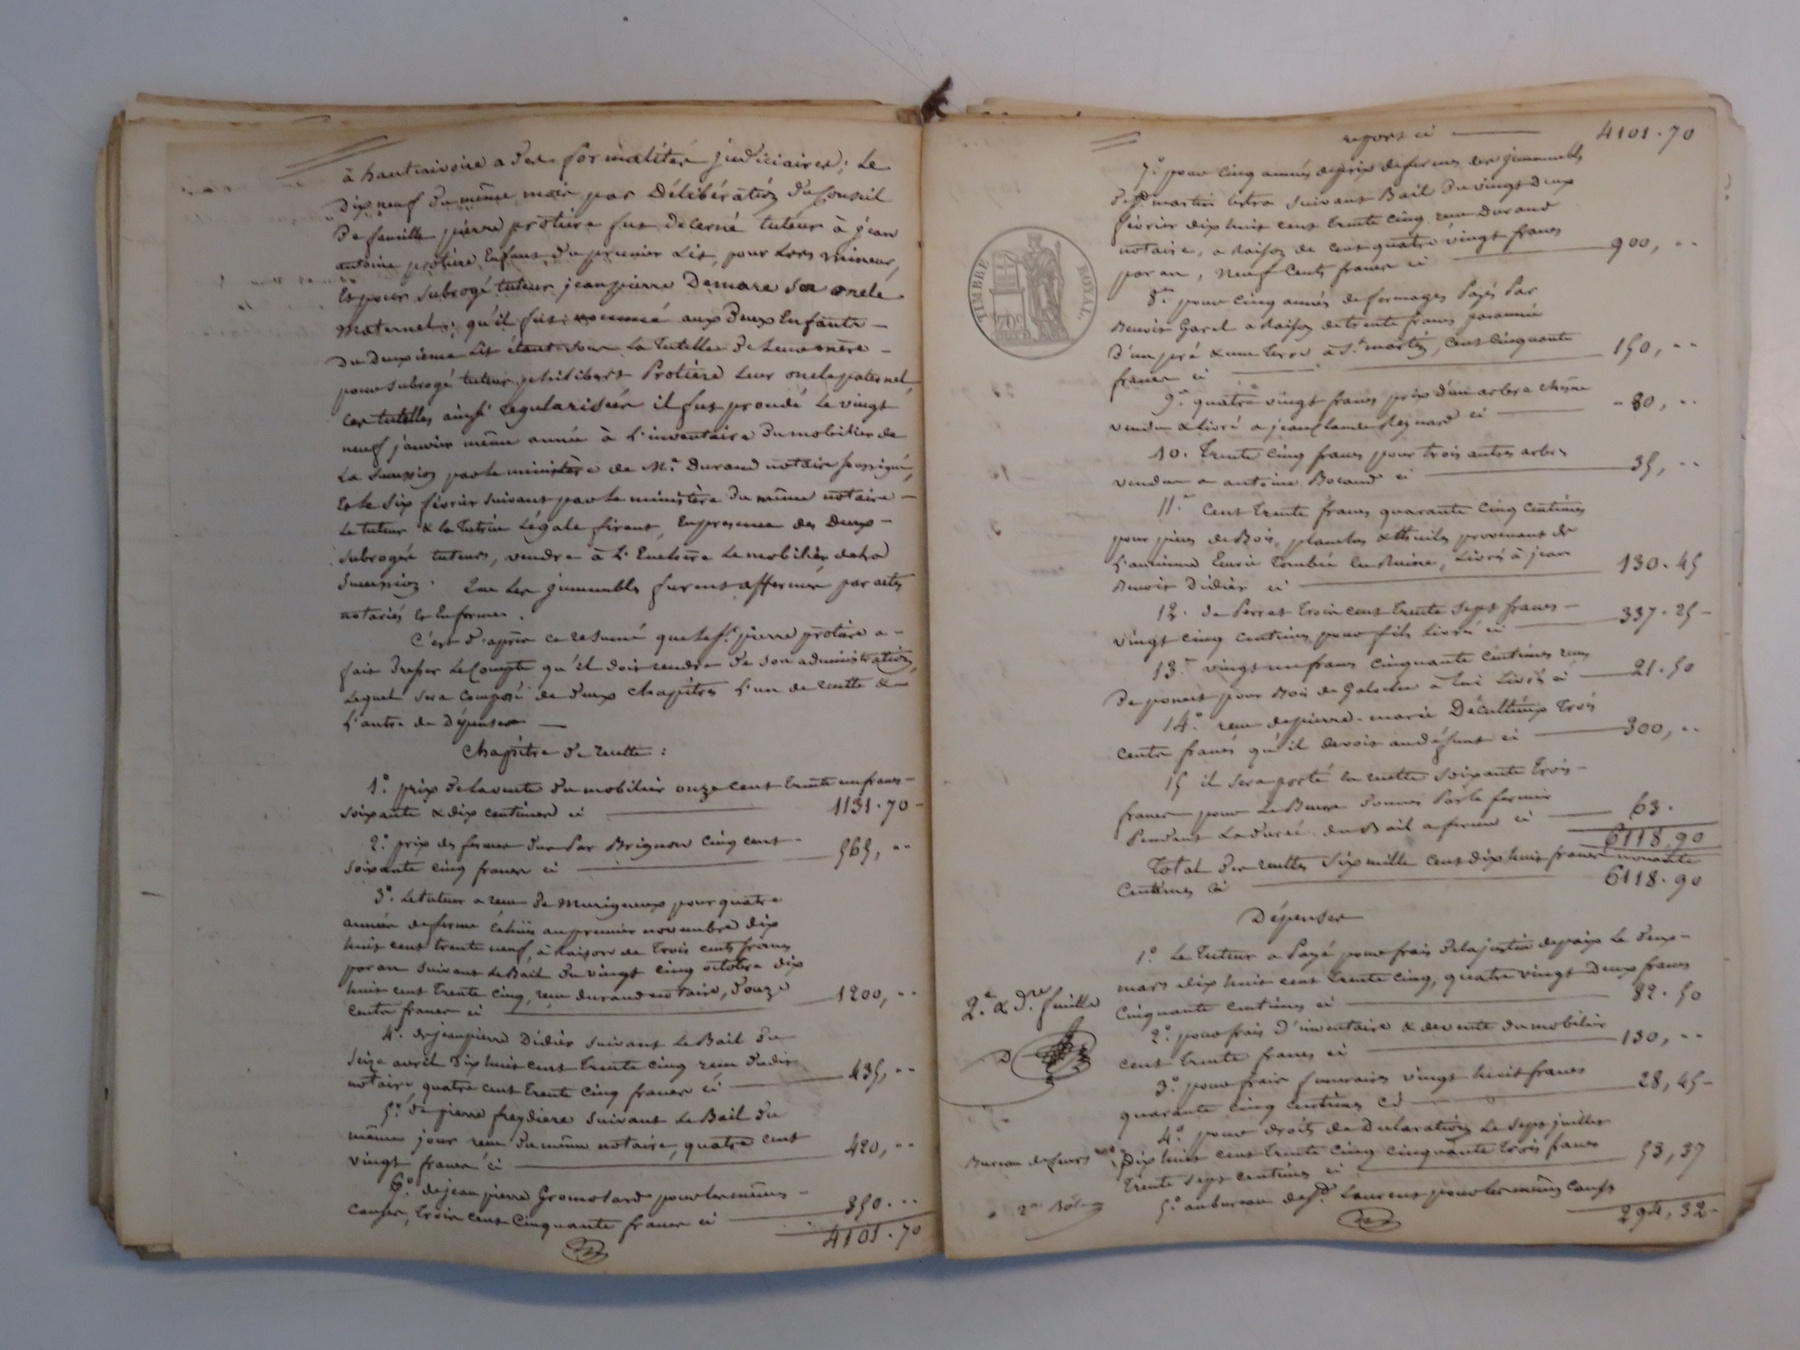 à hautrivoire a des formalités judiciaires; Le
dix neuf du même mois par Délibération du Conseil
de famille pierre protiere fut décerné tuteur à jean
antoine protiere Enfant du premier Lit, pour Lors mineur,
Et pour subrogé tuteur jean pierre Demare son oncle
maternel; qu'il fut nommé aux Deux Enfants
du deuxième Lit étant sous La tutelle de Leur mère
pour subrogé tuteur philibert Protiere Leur oncle paternel,
ces tutelles ainsi regularisées il fut procédé Le vingt
neuf janvier même année à L'inventaire du mobilier de
La Succession par le ministère de Me. Durand notaire soussigné,
Et le Six février suivant par le ministère du même notaire
Le tuteur & la tutrice Légale firent, En presence des Deux
subrogés tuteurs, vendre à L'Enchère Le mobilier de la
succession. Que Les immeubles furent affermés par actes
notariés Et En formes.
C'est d'après ce résumé que Le sr. pierre protiere a
fait dresser Le Compte qu'il doit rendre de son administration,
Lequel sera composé de deux chapitres L'un de recette &
L'autre de dépenses
Chapitre de recette:
1o. prix de la vente du mobilier onze cent trente un francs
soixante & dix centimes ci 1131.70
2o. prix de ferme due Par Brignon Cinq cent
soixante cinq francs ci 565, "
3o. Le tuteur a recu de Murigneux pour quatre
années de ferme échues au premier novembre dix
huit cent trente neuf, à raison de trois cents francs
par an suivant Le Bail du vingt cinq octobre dix
huit cent trente cinq, recu durand notaire, Douze
cents francs ci 1200, "
4o. de jean pierre Didier suivant Le Bail du
Seize avril Dix huit cent trente cinq recu dudit
notaire, quatre cent trente cinq francs ci 435, "
5o. de pierre freydiere suivant Le Bail du
même jour recu du même notaire, quatre cent
vingt francs ci 420, "
6o. de jean pierre Gromolard pour les mêmes
causes, trois cent cinquante francs ci 350 "
4101.70
report ci 4101.70
7o. pour cinq années de prix de fermes des immeubles
de St. martin Lestra suivant Bail du vingt deux
février dix huit cent trente cinq recu Durand
notaire, a raison de cent quatre vingt francs
par an, neuf Cents francs ci 900, "
8o. pour cinq années de fermages Payés Par
Benoit Garel a raison de trente francs par année
d'un pré & une terre à St. martin, Cent cinquante
francs ci 150, "
9o. quatre vingt francs prix d'un arbre chêne
vendu & Livré a jean Claude Reynard ci 80, "
10. Trente cinq francs pour trois autres arbres
vendus a antoine ci 35, "
11o. Cent trente francs quarante cinq centimes
pour pièces de Bois, planches & thuiles provenant de
L'ancienne Ecurie tombée En Ruine, Livrés à jean
Benoit Didier ci 130.45
12. de Perret trois cent trente Sept francs
vingt cinq centimes pour fils Livré ci 337.25
13o. vingt un francs cinquante centimes recu
De poncet pour Bois de Galoche à Lui Livré ci 21.50
14o. recu de pierre-marie trois
cents francs qu'il devoit au défunt ci 300, "
15 il sera porté En recette soixante trois
francs pour Le Beurre donné Par le fermier
Pendant La durée du Bail a ferme ci 63.
6118.90
Total des recettes Six mille cent dix huit francs nonante
Centimes ci 6118.90
Dépenses
1o. Le Tuteur a Payé pour frais de la justice de paix Le deux
mars dix huit cent trente cinq, quatre vingt deux francs
Cinquante centimes ci 82.50
2o. pour frais d'inventaire & de vente du mobilier
cent trente francs ci 130, "
3o. pour frais funeraires vingt huit francs
quarante cinq centimes ci 28,45
4o. pour droits de Declaration Le sept juillet
Dix huit cent trente cinq cinquante trois francs
trente sept centimes ci 53,37
5o. au bureau de St. Laurent pour les mêmes causes
294,32
TIMBRE ROYAL
70c
2e. & Dre. feuille
Bureau de feurs
2e Rôle